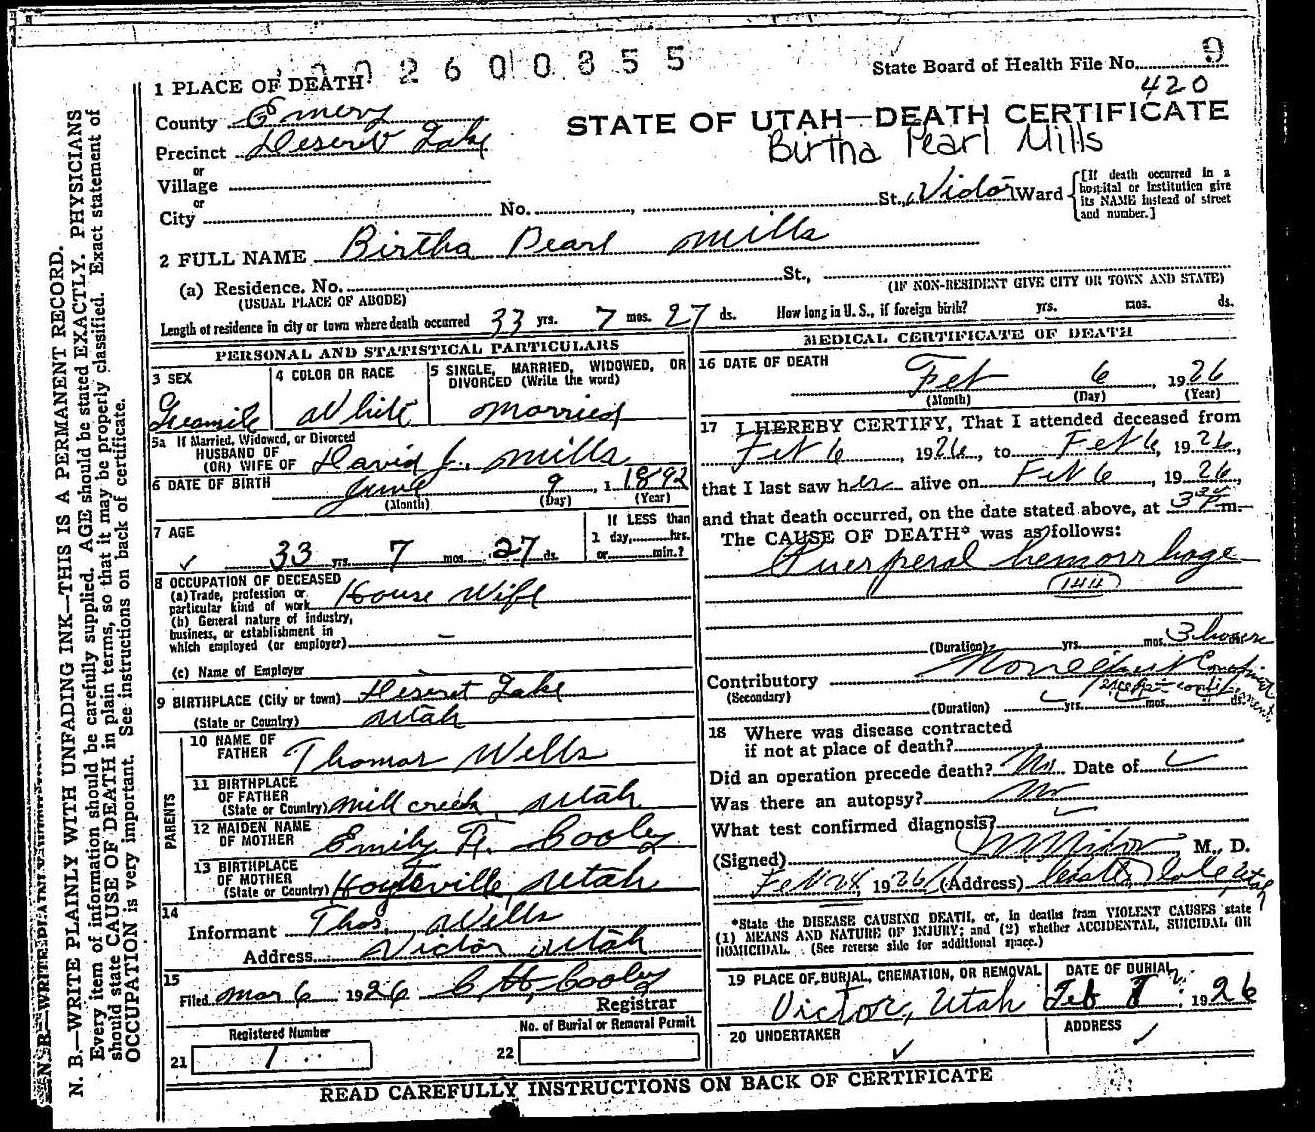 0 0 2 6 0 0 3 5 5
State Board of Health File No. 9
420
1 PLACE OF DEATH
County Emery
STATE OF UTAH—DEATH CERTIFICATE
Birtha Pearl Mills
Precinct Deseret Lake
or
Village
or
City No. , St., Victor Ward
[If death occurred in a hospital or institution give its NAME instead of street and number.]
2 FULL NAME Birtha Pearl Mills
(a) Residence. No. St.,
(USUAL PLACE OF ABODE) (IF NON-RESIDENT GIVE CITY OR TOWN AND STATE)
Length of residence in city or town where death occurred 33 yrs. 7 mos. 27 ds. How long in U. S., if foreign birth? yrs. mos. ds.
PERSONAL AND STATISTICAL PARTICULARS
3 SEX
4 COLOR OR RACE White
5 SINGLE, MARRIED, WIDOWED, OR DIVORCED (Write the word) Married
5a If Married, Widowed, or Divorced
HUSBAND OF
(OR) WIFE OF David J. Mills
6 DATE OF BIRTH June 9, 1 1892
(Month) (Day) (Year)
7 AGE
33 yrs. 7 mos. 27 ds.
If LESS than
1 day, hrs.
or min.?
8 OCCUPATION OF DECEASED
(a) Trade, profession or
particular kind of work House Wife
(b) General nature of industry,
business, or establishment in
which employed (or employer) —
(c) Name of Employer
9 BIRTHPLACE (City or town) Deseret Lake
(State or Country) Utah
PARENTS
10 NAME OF
FATHER Thomas Wells
11 BIRTHPLACE
OF FATHER
(State or Country) Mill creek, Utah
12 MAIDEN NAME
OF MOTHER Emily A. Cooley
13 BIRTHPLACE
OF MOTHER
(State or Country) Hoytsville, Utah
14
Informant Thos. Wells
Address Victor Utah
15
Filed Mar 6 1926 C H Cooley
Registrar
Registered Number
21 1
No. of Burial or Removal Permit
22
MEDICAL CERTIFICATE OF DEATH
16 DATE OF DEATH
Feb 6, 1926
(Month) (Day) (Year)
17 I HEREBY CERTIFY, That I attended deceased from
Feb 6, 1926, to Feb 6, 1926,
that I last saw her alive on Feb 6, 1926,
and that death occurred, on the date stated above, at 3 30 P m.
The CAUSE OF DEATH* was as follows:
Puerperal hemorrhage
144
(Duration) yrs. mos. 3 hours
Contributory None
(Secondary)
(Duration) yrs. mos. ds.
18 Where was disease contracted
if not at place of death?
Did an operation precede death? No Date of
Was there an autopsy? No
What test confirmed diagnosis?
(Signed) M. D.
Feb 24, 1926 (Address)
*State the DISEASE CAUSING DEATH, or, in deaths from VIOLENT CAUSES state
(1) MEANS AND NATURE OF INJURY; and (2) whether ACCIDENTAL, SUICIDAL OR
HOMICIDAL. (See reverse side for additional space.)
19 PLACE OF BURIAL, CREMATION, OR REMOVAL
Victor, Utah
DATE OF BURIAL
Feb 8, 1926
20 UNDERTAKER
ADDRESS
READ CAREFULLY INSTRUCTIONS ON BACK OF CERTIFICATE
N. B.—WRITE PLAINLY WITH UNFADING INK—THIS IS A PERMANENT RECORD.
Every item of information should be carefully supplied. AGE should be stated EXACTLY. PHYSICIANS
should state CAUSE OF DEATH in plain terms, so that it may be properly classified. Exact statement of
OCCUPATION is very important. See instructions on back of certificate.